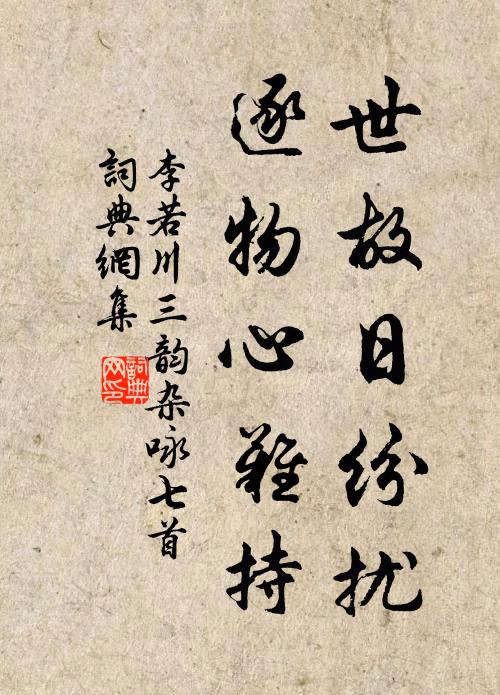 世故日纷扰
逐物心难持
李若川三韵杂咏七首
词典网集
词典网印